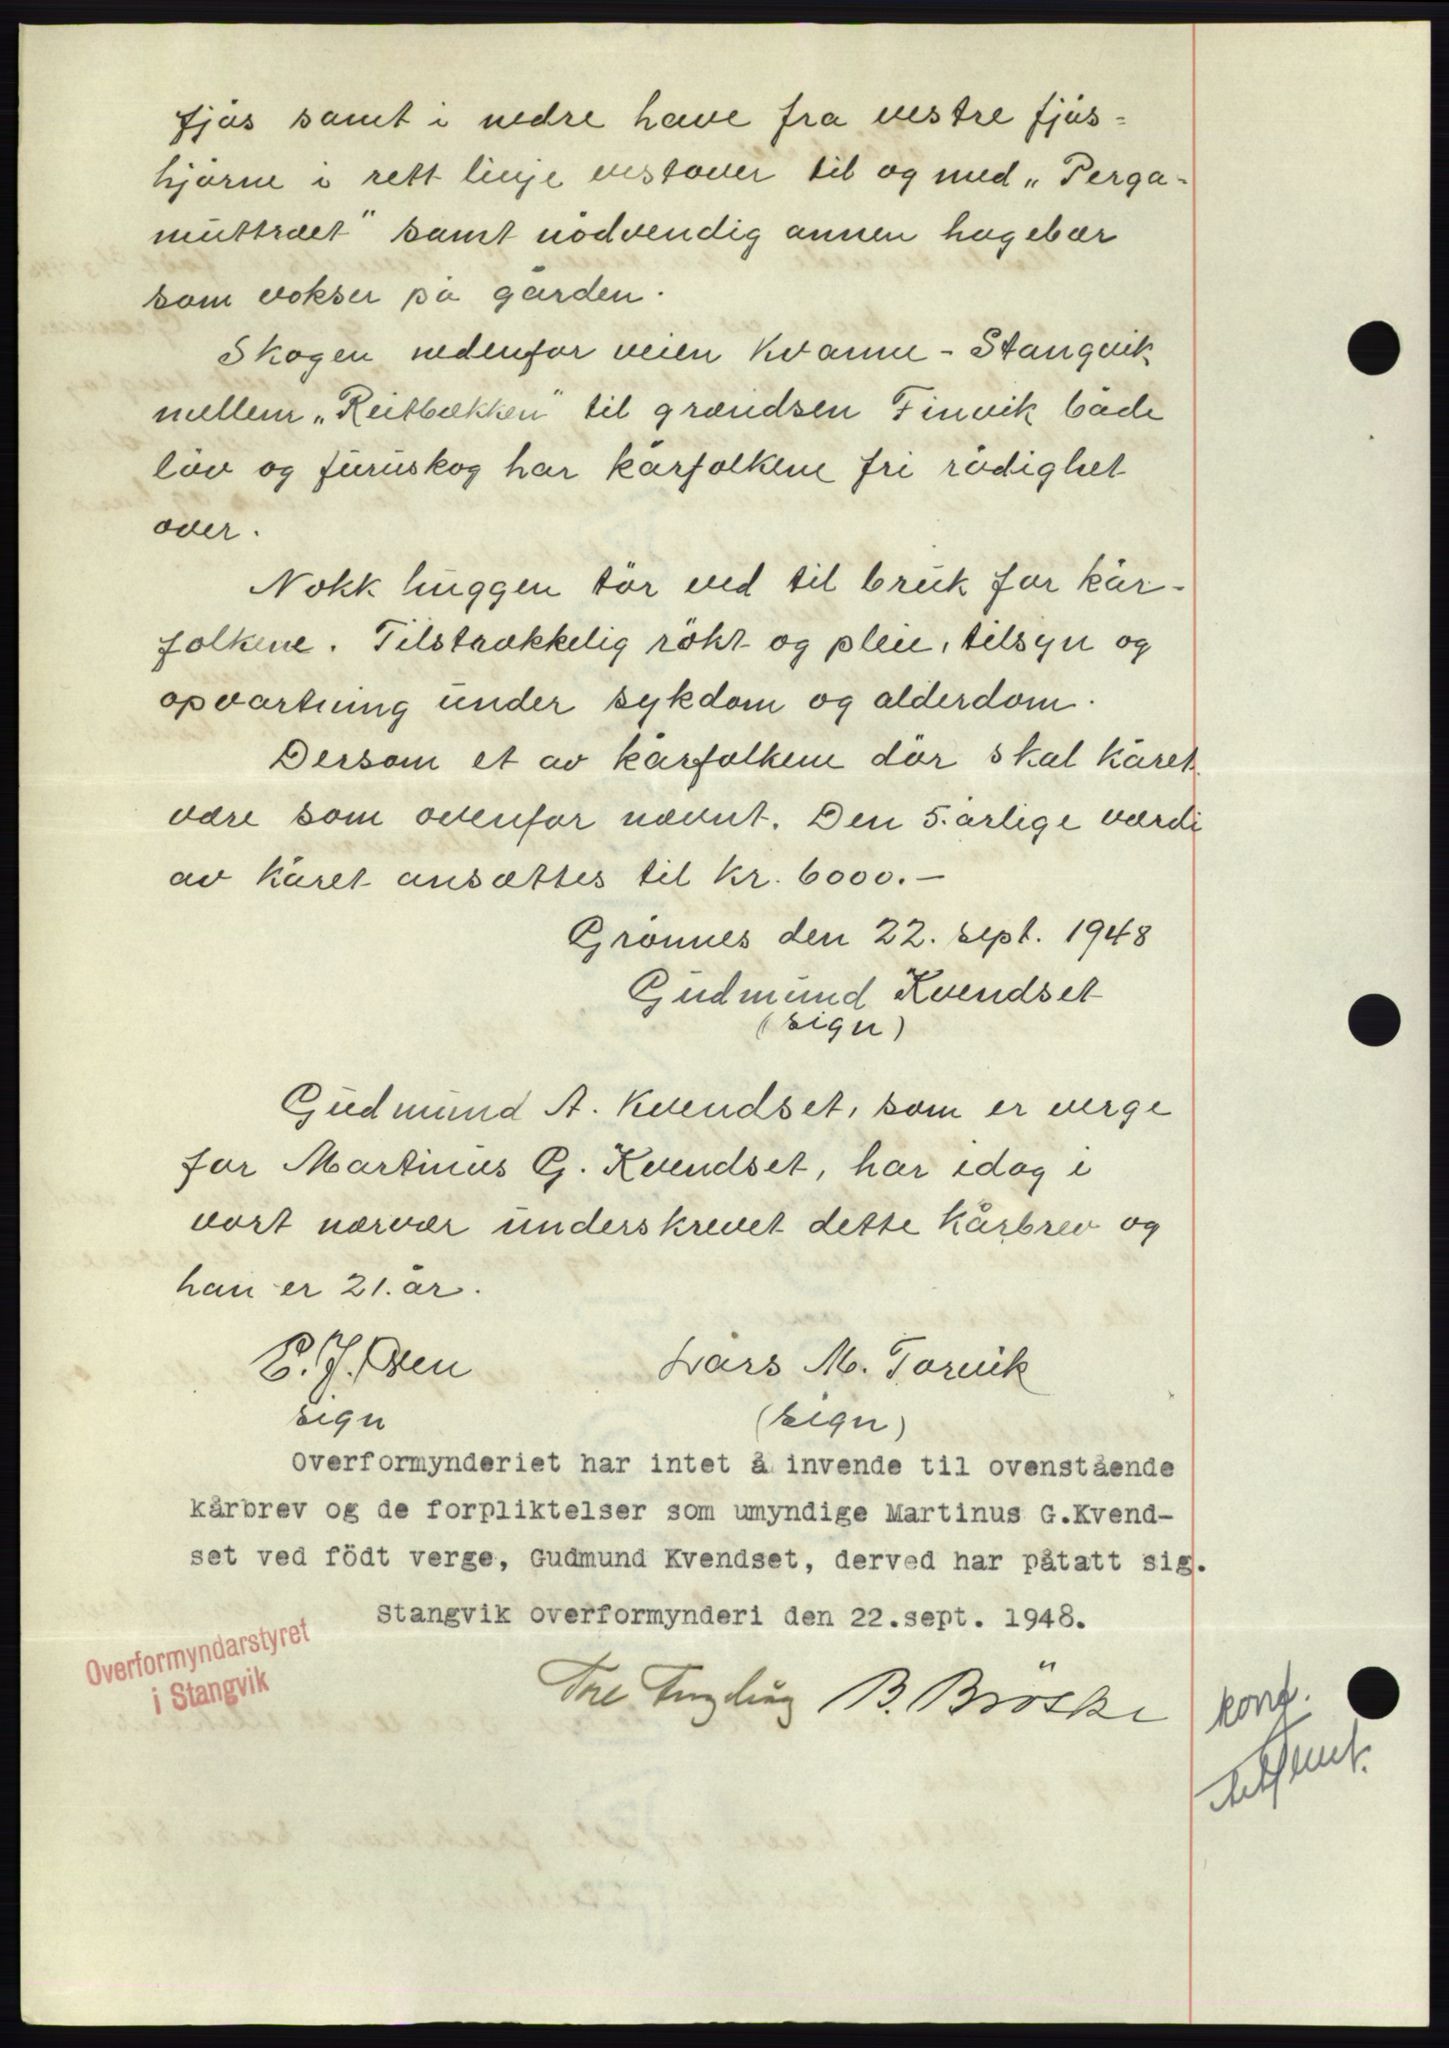 fjös samt i nedre have fra vestre fjös=
hjörne i rett linje vestover til og med „Perga-
muttræet" samt nödvendig annen hagebær
som vokser på gården.
Skogen nedenfor veien Kvanne - Stangvik
mellem „Reitbækken" til grændsen Finvik både
löv og furuskog har kårfolkene fri rådighet
over.
Nokk huggen tör ved til bruk for kår-
folkene. Tilstrækkelig rökt og pleie, tilsyn og
opvartning under sykdom og alderdom.
Dersom et av kårfolkene dör skal kåret
være som ovenfor nævnt. Den 5. årlige værdi
av kåret ansættes til kr. 6000.—
Grönnes den 22. sept. 1948
Gudmund Kvendset
(sign)
Gudmund A. Kvendset, som er verge
for Martinus G. Kvendset, har idag i
vort nærvær underskrevet dette kårbrev og
han er 21. år.
E. J. Lars M. Torvik
sign (sign)
Overformynderiet har intet å invende til ovenstående
kårbrev og de forpliktelser som umyndige Martinus G.Kvend-
set ved födt verge, Gudmund Kvendset, derved har påtatt sig.
Stangvik overformynderi den 22.sept. 1948.
Overformyndarstyret
i Stangvik
B. Bröske
konf.